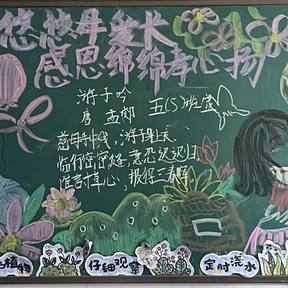 悠悠母爱长
感恩绵绵孝心扬
游子吟
唐 孟郊
五(5)班宣
慈母手中线,游子身上衣。
临行密密缝,意恐迟迟归。
谁言寸草心,报得三春晖。
植物
仔细观察
定时浇水